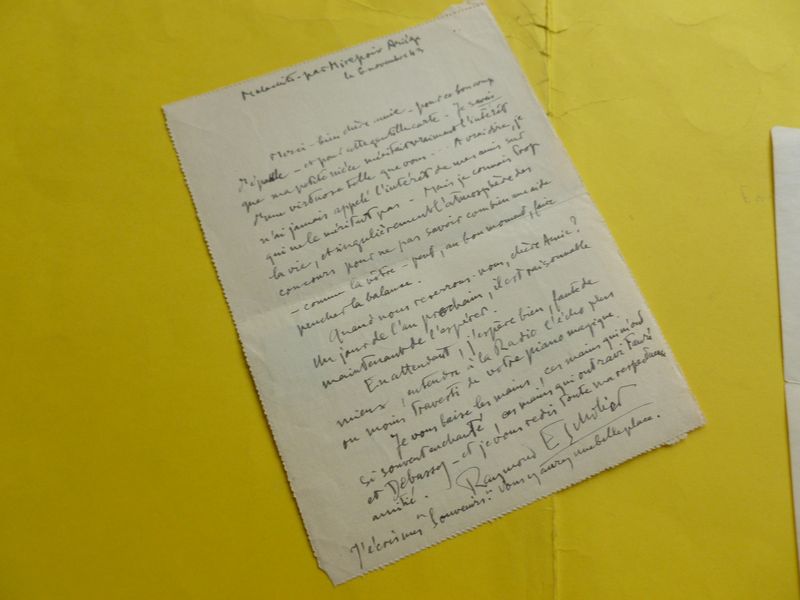 Malaquit - par Mirepoix Ariège
le 6 novembre 43
Merci - bien chère amie - pour ce bon coup
d'épaule - et pour cette gentille carte - Je savais
que ma petite nièce méritait vraiment l'intérêt
d'une virtuose telle que vous... A vrai dire, je
n'ai jamais appelé l'intérêt de mes amis sur
qui ne le méritait pas - Mais je connais trop
la vie, et singulièrement l'atmosphère des
concours pour ne pas savoir combien une aide
- comme la vôtre - peut, au bon moment, faire
pencher la balance.
Quand vous reverrons-nous, chère Amie?
Un jour de l'an prochain, il est raisonnable
maintenant de l'espérer.
En attendant! j'espère bien, faute de
mieux, entendre à la Radio l'écho plus
ou moins travesti de votre piano magique.
Je vous baise les mains, ces mains qui m'ont
si souvent enchanté, ces mains qui ont ravi Fauré
et Debussy - et je vous redis toute ma respectueuse
amitié.
Raymond Escholier
J'écris mes "Souvenirs". Vous y aurez une belle place.